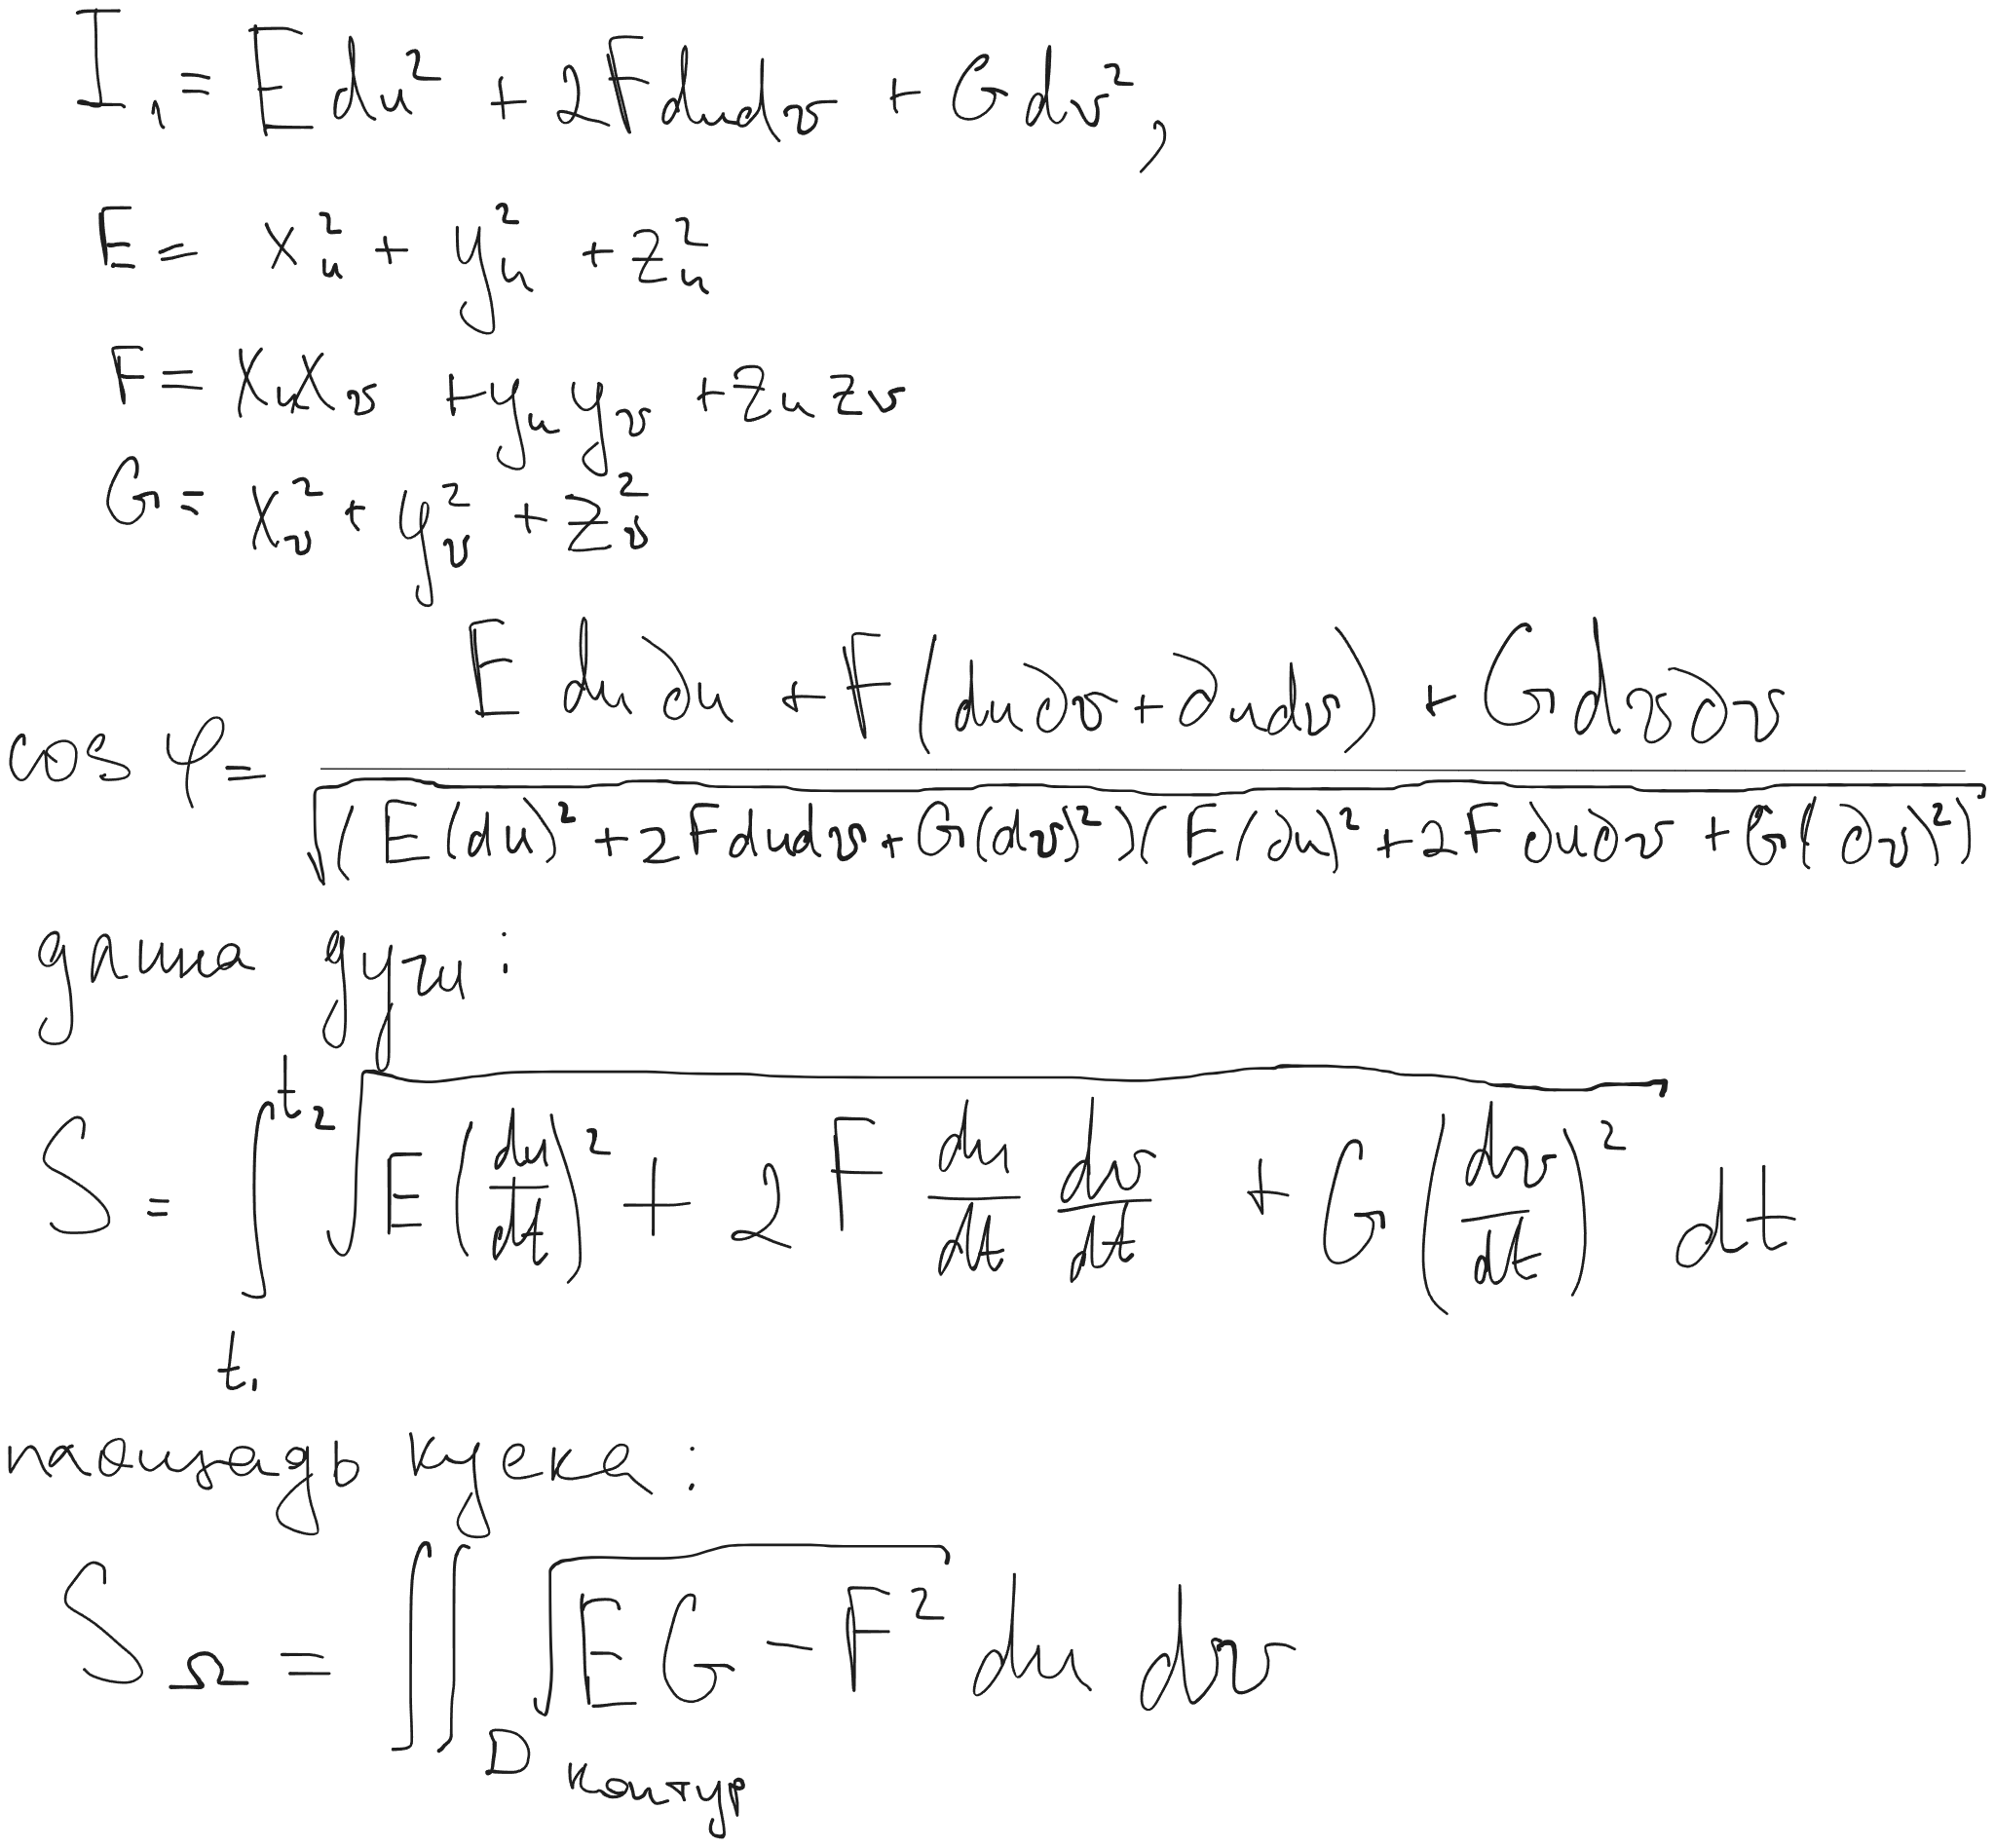 I₁ = E du² + 2F du dv + G dv²,
E = x_u² + y_u² + z_u²
F = x_u x_v + y_u y_v + z_u z_v
G = x_v² + y_v² + z_v²
cos φ = (E du ∂u + F(du ∂v + ∂u dv) + G dv ∂v) / √((E(du)² + 2F du dv + G(dv)²)(E(∂u)² + 2F ∂u ∂v + G(∂v)²))
длина дуги:
S = ∫_{t₁}^{t₂} √(E(du/dt)² + 2F du/dt dv/dt + G(dv/dt)²) dt
площадь куска:
S_Ω = ∬_D √(EG - F²) du dv
контур